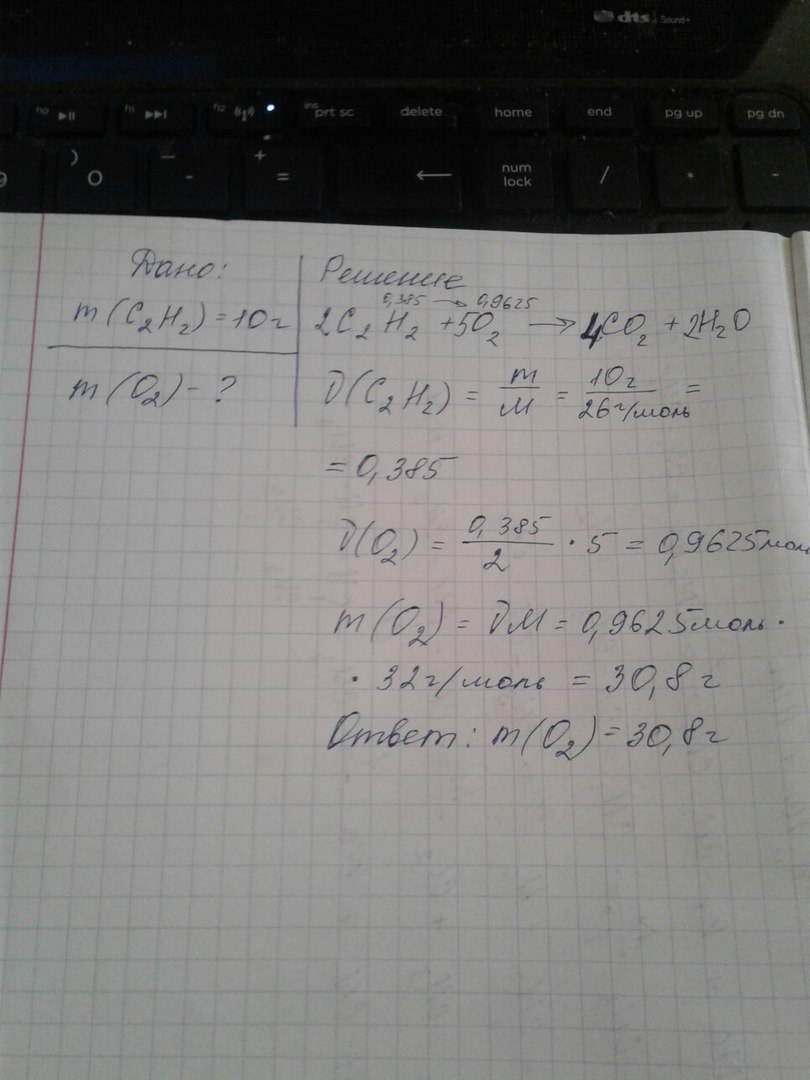 dts Sound+
f10 f11 f12 ins prt sc delete home end pg up pg dn
9 ) 0 _ - + = ← num lock / * -
Дано:
m(C₂H₂)=10г
m(O₂)-?
Решение
0,385 → 0,9625
2C₂H₂ +5O₂ → 4CO₂ +2H₂O
ν(C₂H₂) = m/M = 10г/26г/моль =
= 0,385
ν(O₂) = 0,385/2 · 5 = 0,9625моль
m(O₂) = νM = 0,9625моль ·
· 32г/моль = 30,8г
Ответ: m(O₂)=30,8г